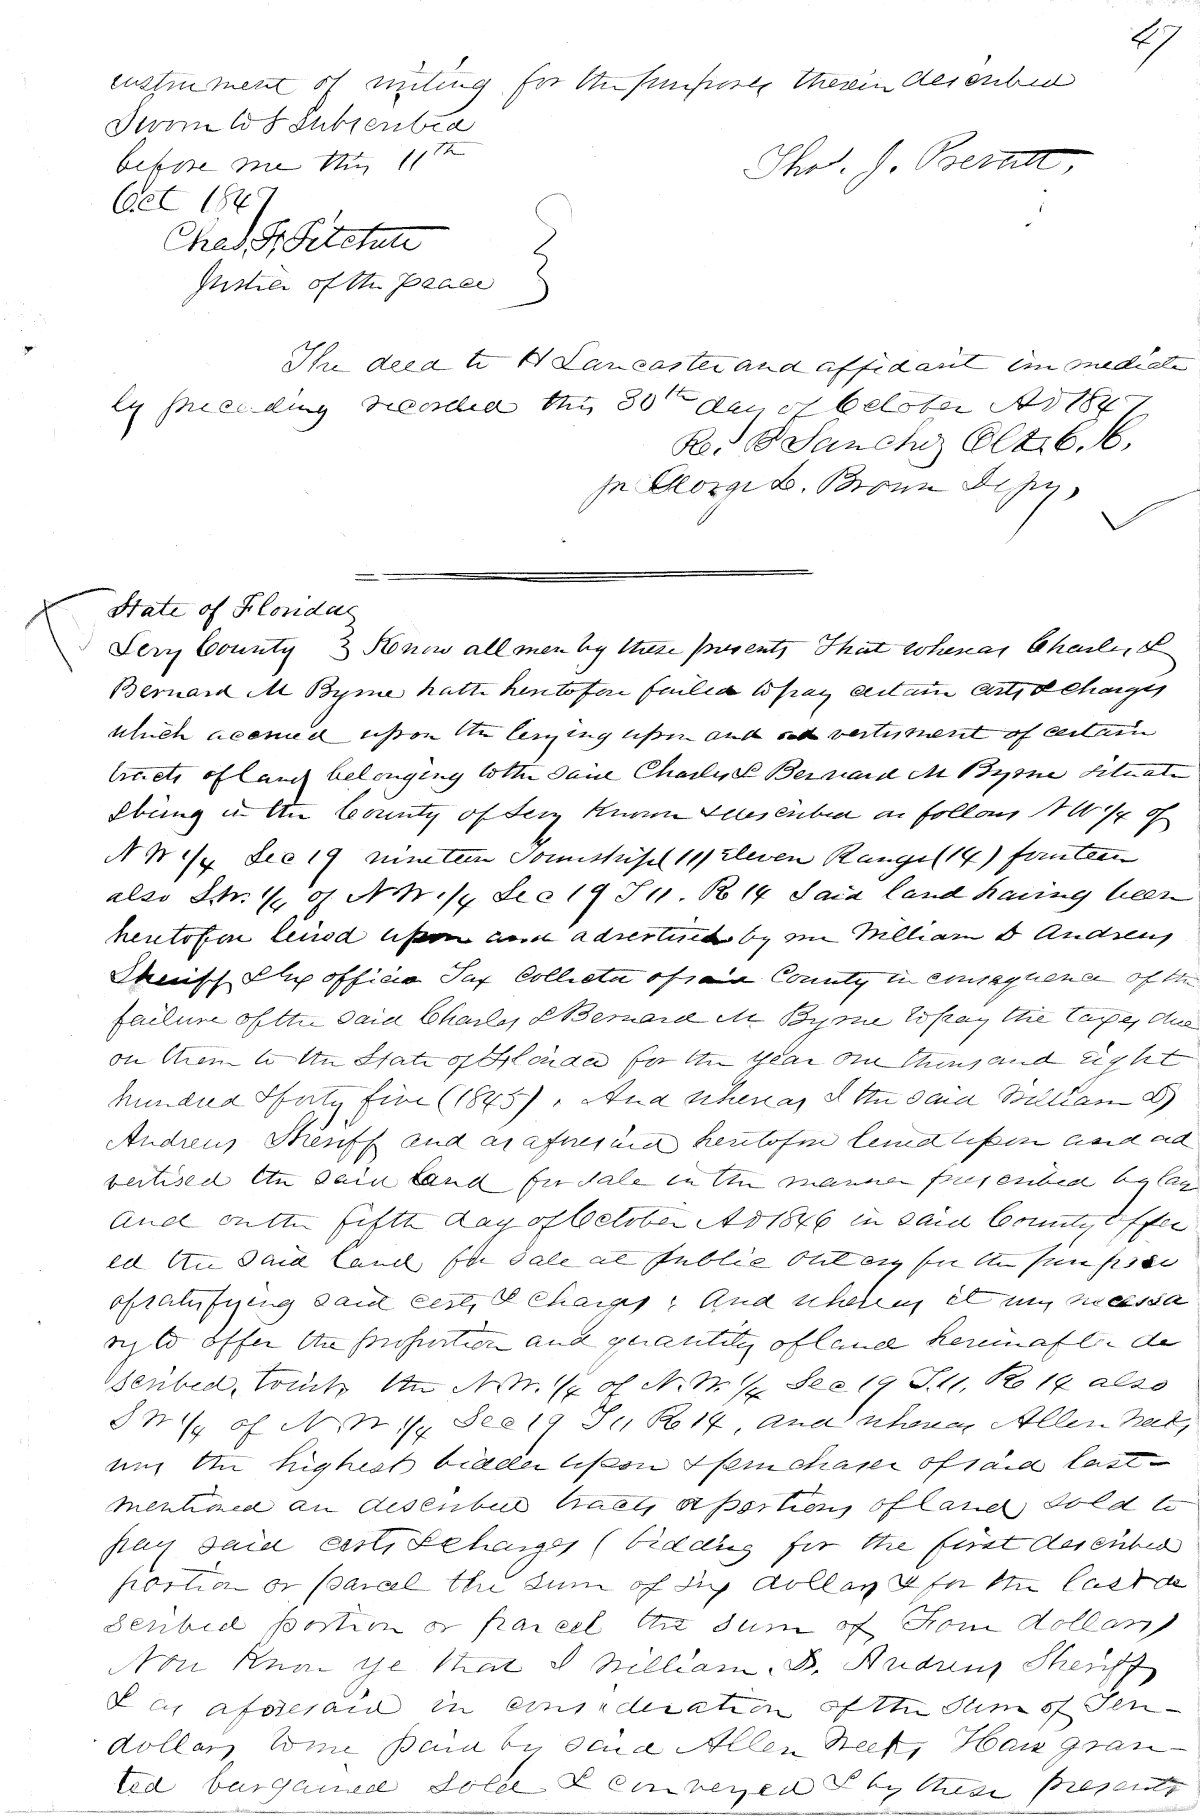 47
instrument of writing for the purposes therein described
Sworn to & Subscribed
before me this 11th
Thos. J. Prevatt.
Oct 1847
Chas. F. Fitchett
Justice of the peace
The deed to H Lancaster and affidavit immediate
ly preceding recorded this 30th day of October AD 1847
R. B Sanchez Clk. C. C.
pr George L. Brown Depy,
State of Florida
Levy County } Know all men by these presents That whereas Charles &
Bernard M Byrne hath heretofore failed to pay certain costs & charges
which accrued upon the levying upon and ad vertisment of certain
tracts of land belonging to the said Charles & Bernard M Byrne situate
& being in the County of Levy Known & described as follows NW 1/4 of
N W 1/4 Sec 19 nineteen Township (11) Eleven Range (14) fourteen
also S.W. 1/4 of N W. 1/4 Sec 19 T 11. R 14 Said land having been
heretofore levied upon and advertised by me William D Andrews
Sheriff & Ex officio Tax Collector of said County in consequence of the
failure of the said Charles & Bernard M. Byrne to pay the taxes due
on them to the State of Florida for the year one thousand eight
hundred & forty five (1845). And whereas I the said William D
Andrews Sheriff and as aforesaid heretofore levied upon and ad
vertised the said land for sale in the manner prescribed by law
and on the fifth day of October AD 1846 in said County offer
ed the said land for sale at public outcry for the purpose
of satisfying said costs & charges; And whereas it was necessa
ry to offer the proportion and quantity of land hereinafter de
scribed, to wit, the N.W. 1/4 of N. W. 1/4 Sec 19 T.11. R 14 also
S W 1/4 of N. W 1/4 Sec 19 T 11 R 14, and whereas Allen Weeks
was the highest bidder upon & purchaser of said last-
mentioned an described tracts or portions of land sold to
pay said costs & charges ( bidding for the first described
portion or parcel the sum of six dollars & for the last de
scribed portion or parcel the sum of Four dollars)
Now Know ye that I William. D. Andrews Sheriff
& as aforesaid in consideration of the sum of Ten-
dollars to me paid by said Allen Weeks, Have gran-
ted bargained sold & conveyed & by these presents